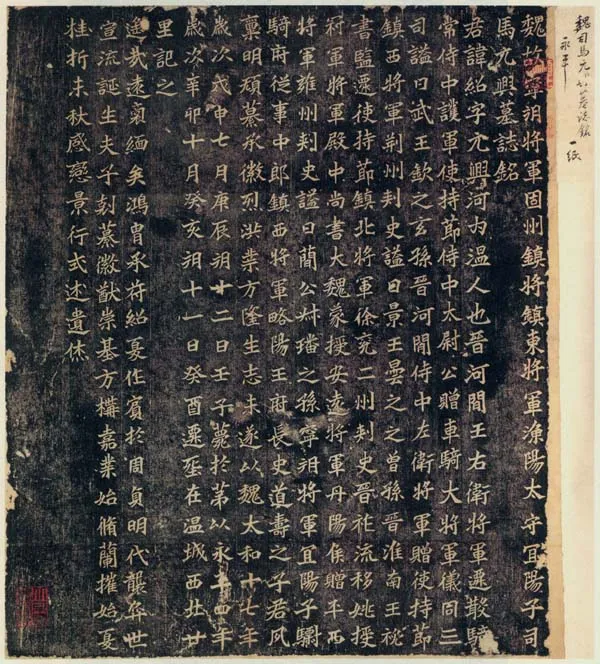 魏司馬元興墓誌銘
永平
一紙
魏故寧朔將軍固州鎮將鎮東將軍漁陽太守宜陽子司
馬元興墓誌銘
君諱紹字元興河內溫人也晉河間王右衛將軍遷散騎
常侍中護軍使持節侍中太尉公贈車騎大將軍儀同三
司謚曰武王欽之玄孫晉河間侍中左衛將軍贈使持節
鎮西將軍荊州刺史謚曰景王曇之之曾孫晉淮南王祕
書監遷使持節鎮北將軍徐兗二州刺史晉祚流移姚授
冠軍將軍殿中尚書大魏蒙授安遠將軍丹陽侯贈平西
將軍雍州刺史謚曰簡公叔璠之孫寧朔將軍宜陽子驃
騎府從事中郎鎮西將軍略陽王府長史道壽之子君夙
稟明頎纂承徽烈洪業方隆生志未遂以魏太和十七年
歲次戊申七月庚辰朔廿二日壬子薨於第以永平四年
歲次辛卯十月癸亥朔十一日癸酉遷塋在溫城西北廿
里記之
遙哉遠氣緬矣鴻冑承符紹夏作賓於周貞明代襲弈世
宣流誕生夫子剋纂徽猷崇基方構嘉業始脩蘭摧始夏
桂折未秋感戀景行式述遺休